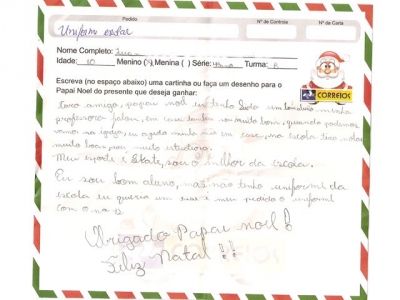 Pedido
Nº de Controle
Nº da Carta
Uniforme escolar
Nome Completo: Luc
Idade: 10 Menino (X) Menina ( ) Série: Turma: B
Escreva (no espaço abaixo) uma cartinha ou faça um desenho para o
Papai Noel do presente que deseja ganhar:
CORREIOS
amigo, papai noel eu tenho minha
professora falou, em casa tambem sou muito bom, quando podemos
vamos na igreja, eu ajudo minha mãe em casa, na escola tiro notas
muito boas, sou muito estudioso.
Meu esporte é Skate, sou o melhor da escola.
Eu sou bom aluno, mas não tenho uniforme da
escola eu queria um esse é meu pedido o uniforme
com o no 12
Obrigado Papai noel!
Feliz Natal!!